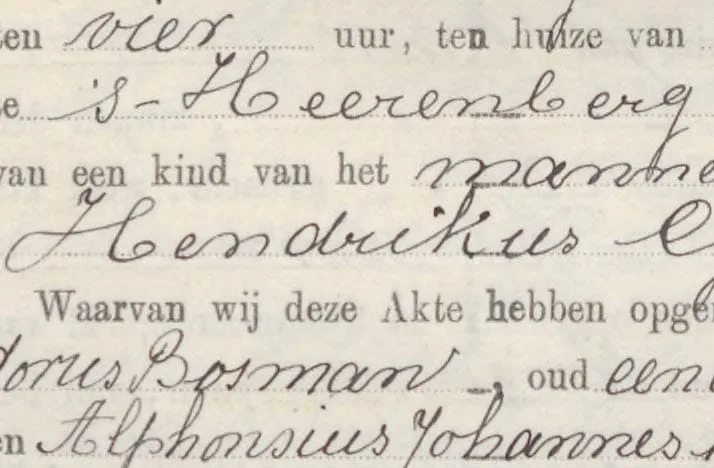 ten vier uur, ten huize van
te 's-Heerenberg
van een kind van het manne
Hendrikus
Waarvan wij deze Akte hebben opge
dorus Bosman, oud een
en Alphonsius Johannes